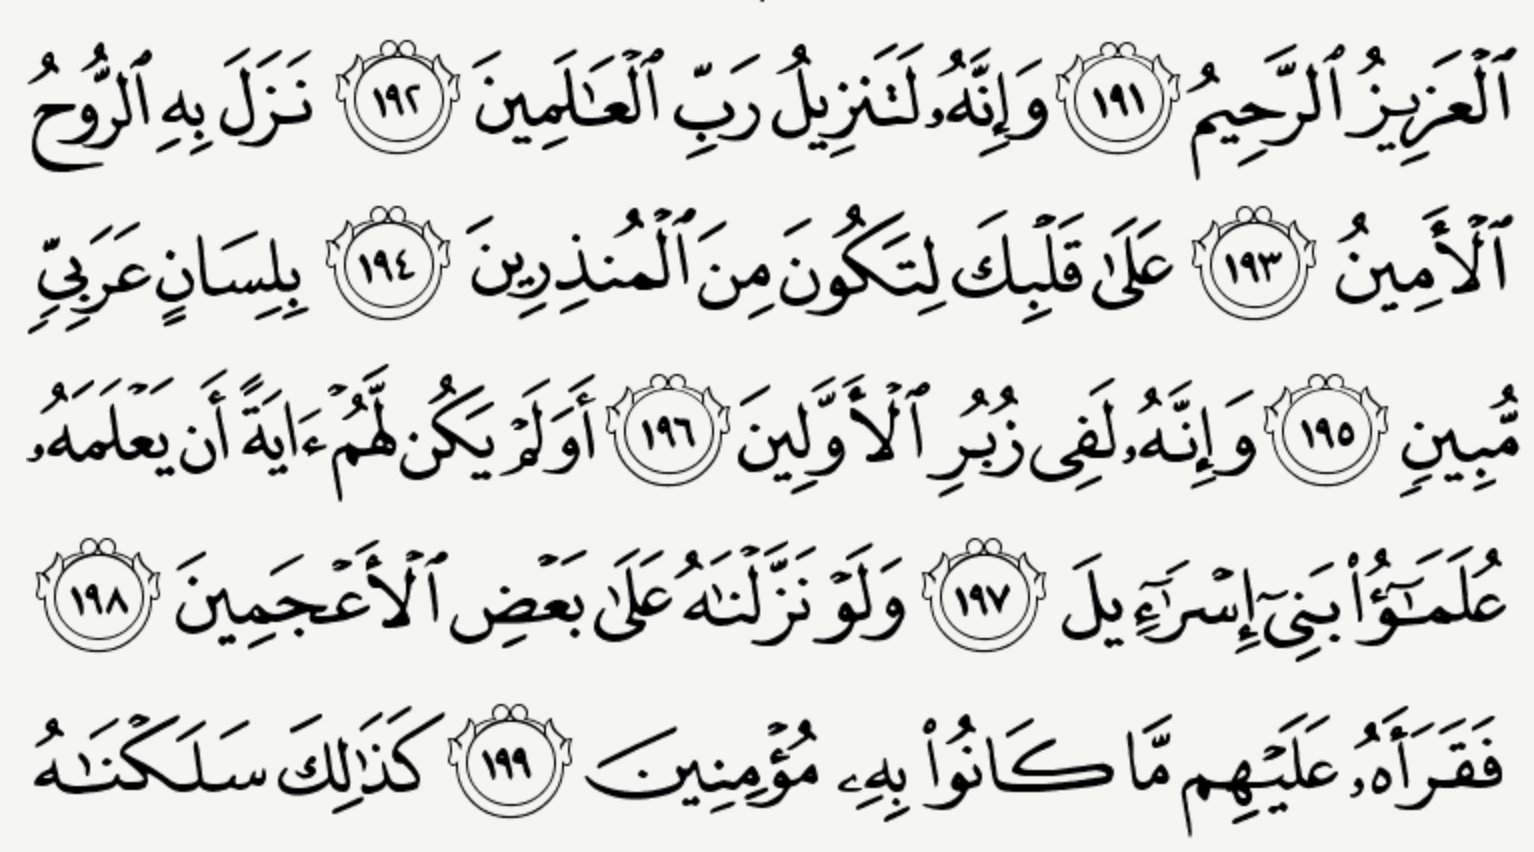 ٱلْعَزِيزُ ٱلرَّحِيمُ ١٩١ وَإِنَّهُۥ لَتَنزِيلُ رَبِّ ٱلْعَـٰلَمِينَ ١٩٢ نَزَلَ بِهِ ٱلرُّوحُ
ٱلْأَمِينُ ١٩٣ عَلَىٰ قَلْبِكَ لِتَكُونَ مِنَ ٱلْمُنذِرِينَ ١٩٤ بِلِسَانٍ عَرَبِىٍّ
مُّبِينٍ ١٩٥ وَإِنَّهُۥ لَفِى زُبُرِ ٱلْأَوَّلِينَ ١٩٦ أَوَلَمْ يَكُن لَّهُمْ ءَايَةً أَن يَعْلَمَهُۥ
عُلَمَـٰٓؤُا۟ بَنِىٓ إِسْرَٰٓءِيلَ ١٩٧ وَلَوْ نَزَّلْنَـٰهُ عَلَىٰ بَعْضِ ٱلْأَعْجَمِينَ ١٩٨
فَقَرَأَهُۥ عَلَيْهِم مَّا كَانُوا۟ بِهِۦ مُؤْمِنِينَ ١٩٩ كَذَٰلِكَ سَلَكْنَـٰهُ